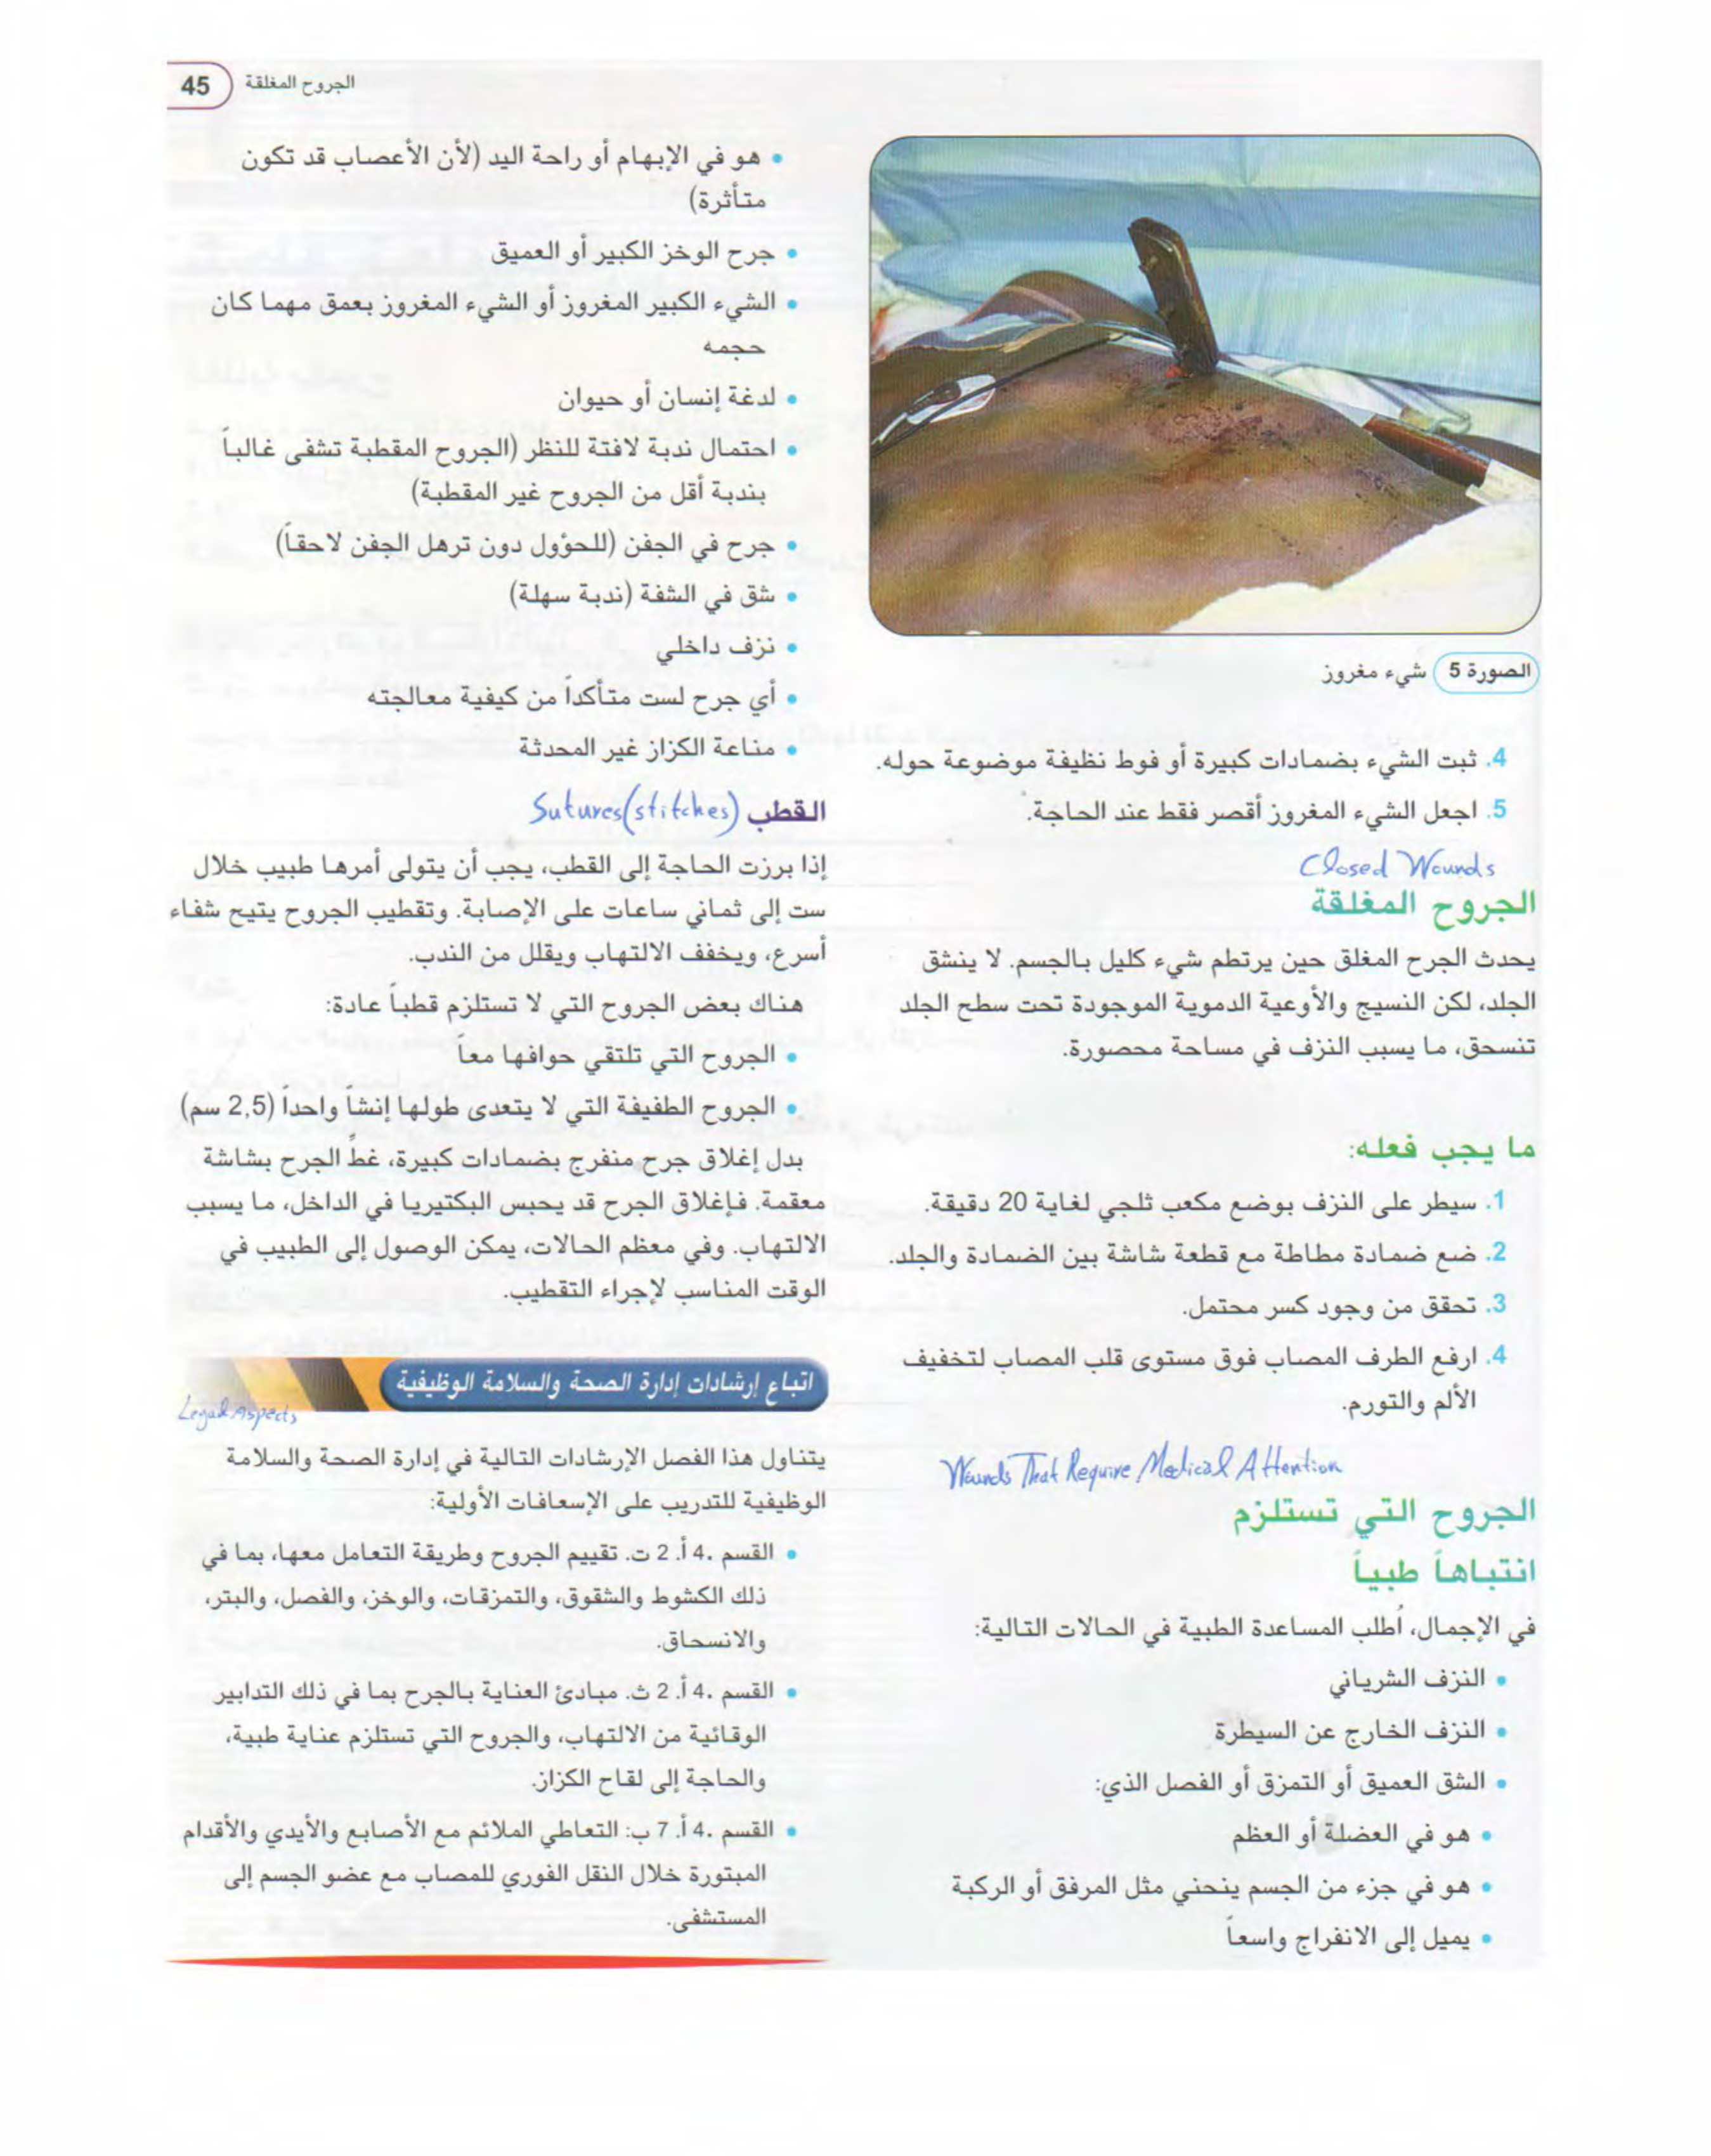 45 الجروح المغلقة
الصورة 5 شيء مغروز
4. ثبت الشيء بضمادات كبيرة أو فوط نظيفة موضوعة حوله.
5. اجعل الشيء المغروز أقصر فقط عند الحاجة.
Closed Wounds
الجروح المغلقة
يحدث الجرح المغلق حين يرتطم شيء كليل بالجسم. لا ينشق
الجلد، لكن النسيج والأوعية الدموية الموجودة تحت سطح الجلد
تنسحق، ما يسبب النزف في مساحة محصورة.
ما يجب فعله:
1. سيطر على النزف بوضع مكعب ثلجي لغاية 20 دقيقة.
2. ضع ضمادة مطاطة مع قطعة شاشة بين الضمادة والجلد.
3. تحقق من وجود كسر محتمل.
4. ارفع الطرف المصاب فوق مستوى قلب المصاب لتخفيف
الألم والتورم.
Wounds That Require Medical Attention
الجروح التي تستلزم
انتباهاً طبياً
في الإجمال، اُطلب المساعدة الطبية في الحالات التالية:
• النزف الشرياني
• النزف الخارج عن السيطرة
• الشق العميق أو التمزق أو الفصل الذي:
• هو في العضلة أو العظم
• هو في جزء من الجسم ينحني مثل المرفق أو الركبة
• يميل إلى الانفراج واسعاً
• هو في الإبهام أو راحة اليد (لأن الأعصاب قد تكون
متأثرة)
• جرح الوخز الكبير أو العميق
• الشيء الكبير المغروز أو الشيء المغروز بعمق مهما كان
حجمه
• لدغة إنسان أو حيوان
• احتمال ندبة لافتة للنظر (الجروح المقطبة تشفى غالباً
بندبة أقل من الجروح غير المقطبة)
• جرح في الجفن (للحؤول دون ترهل الجفن لاحقاً)
• شق في الشفة (ندبة سهلة)
• نزف داخلي
• أي جرح لست متأكداً من كيفية معالجته
• مناعة الكزاز غير المحدثة
القطب Sutures(stitches)
إذا برزت الحاجة إلى القطب، يجب أن يتولى أمرها طبيب خلال
ست إلى ثماني ساعات على الإصابة. وتقطيب الجروح يتيح شفاء
أسرع، ويخفف الالتهاب ويقلل من الندب.
هناك بعض الجروح التي لا تستلزم قطباً عادة:
• الجروح التي تلتقي حوافها معاً
• الجروح الطفيفة التي لا يتعدى طولها إنشاً واحداً (2,5 سم)
بدل إغلاق جرح منفرج بضمادات كبيرة، غطِّ الجرح بشاشة
معقمة. فإغلاق الجرح قد يحبس البكتيريا في الداخل، ما يسبب
الالتهاب. وفي معظم الحالات، يمكن الوصول إلى الطبيب في
الوقت المناسب لإجراء التقطيب.
اتباع إرشادات إدارة الصحة والسلامة الوظيفية
Legal Aspects
يتناول هذا الفصل الإرشادات التالية في إدارة الصحة والسلامة
الوظيفية للتدريب على الإسعافات الأولية:
• القسم .4 أ. 2 ت. تقييم الجروح وطريقة التعامل معها، بما في
ذلك الكشوط والشقوق، والتمزقات، والوخز، والفصل، والبتر،
والانسحاق.
• القسم .4 أ. 2 ث. مبادئ العناية بالجرح بما في ذلك التدابير
الوقائية من الالتهاب، والجروح التي تستلزم عناية طبية،
والحاجة إلى لقاح الكزاز.
• القسم .4 أ. 7 ب: التعاطي الملائم مع الأصابع والأيدي والأقدام
المبتورة خلال النقل الفوري للمصاب مع عضو الجسم إلى
المستشفى.